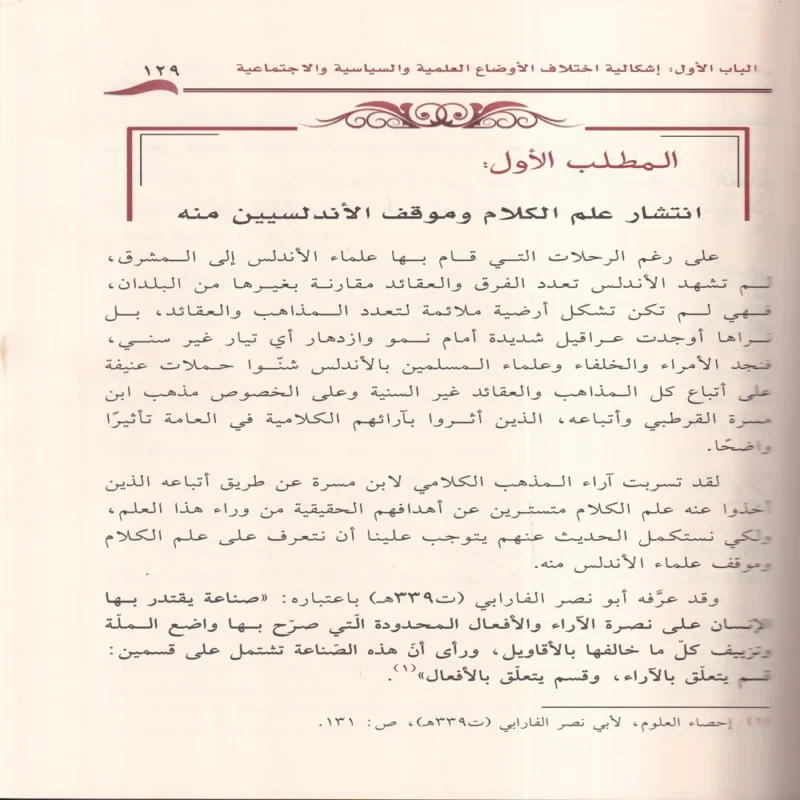 الباب الأول: إشكالية اختلاف الأوضاع العلمية والسياسية والاجتماعية ١٢٩
المطلب الأول:
انتشار علم الكلام وموقف الأندلسيين منه
على رغم الرحلات التي قام بها علماء الأندلس إلى المشرق،
لم تشهد الأندلس تعدد الفرق والعقائد مقارنة بغيرها من البلدان،
فهي لم تكن تشكل أرضية ملائمة لتعدد المذاهب والعقائد، بل
نراها أوجدت عراقيل شديدة أمام نمو وازدهار أي تيار غير سني،
فنجد الأمراء والخلفاء وعلماء المسلمين بالأندلس شنّوا حملات عنيفة
على أتباع كل المذاهب والعقائد غير السنية وعلى الخصوص مذهب ابن
مسرة القرطبي وأتباعه، الذين أثروا بآرائهم الكلامية في العامة تأثيرًا
واضحًا.
لقد تسربت آراء المذهب الكلامي لابن مسرة عن طريق أتباعه الذين
أخذوا عنه علم الكلام متسترين عن أهدافهم الحقيقية من وراء هذا العلم،
ولكي نستكمل الحديث عنهم يتوجب علينا أن نتعرف على علم الكلام
وموقف علماء الأندلس منه.
وقد عرَّفه أبو نصر الفارابي (ت٣٣٩هـ) باعتباره: «صناعة يقتدر بها
الإنسان على نصرة الآراء والأفعال المحدودة الّتي صرّح بها واضع الملّة
وتزييف كلّ ما خالفها بالأقاويل، ورأى أنّ هذه الصّناعة تشتمل على قسمين:
قسم يتعلّق بالآراء، وقسم يتعلّق بالأفعال»(١).
(١) إحصاء العلوم، لأبي نصر الفارابي (ت٣٣٩هـ)، ص: ١٣١.